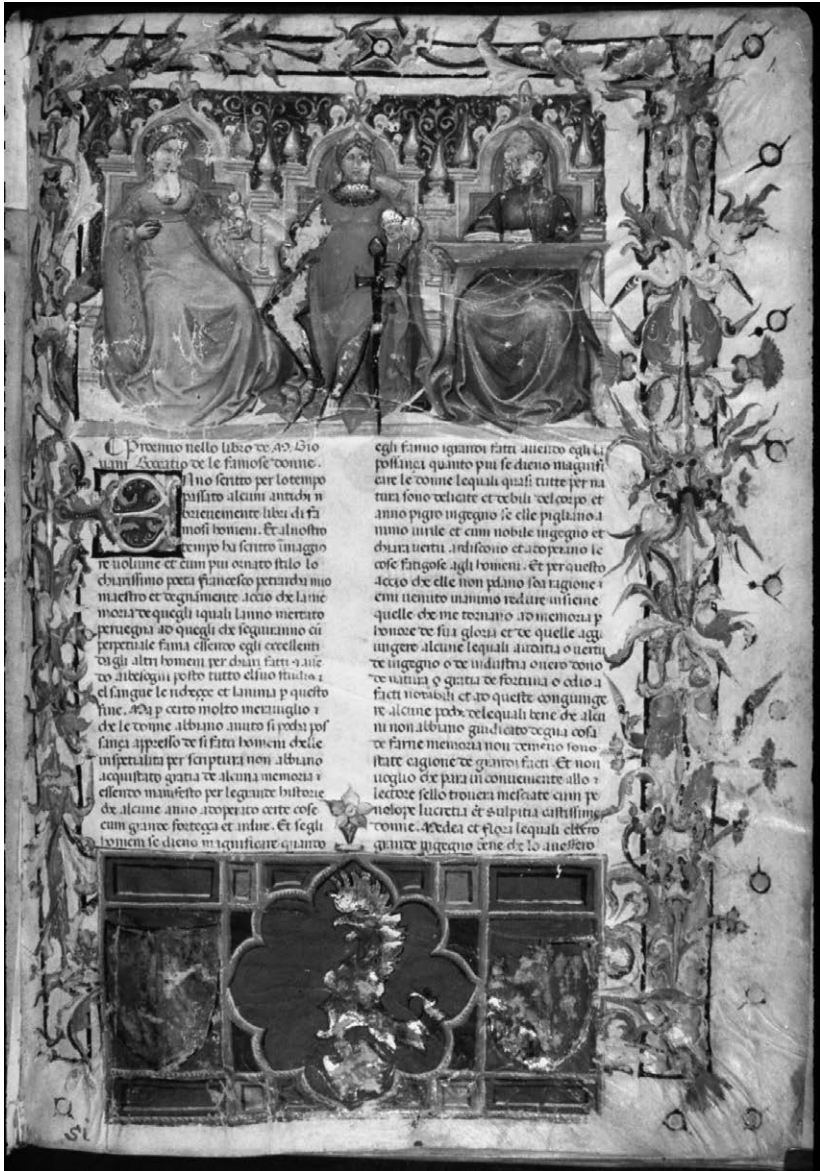 Proemio nello libro de M. Gio
uani Bocatio de le famose donne.
Ano scritto per lo tempo
passato alcuni antichi
brieuemente libri di fa
mosi homeni. Et al nostro
tempo ha scritto in maggio
re uolume et cum piu ornato stilo lo
chiarissimo poeta francesco petrarcha mio
maestro et degnamente accio che la me
moria de quegli iquali anno meritato
peruegna ad quegli che seguiranno cū
perpetuale fama essendo egli excellenti
dagli altri homeni per chiari fatti
posto tutto el suo studio
el sangue le richeçe et lanima p questo
fine. Ma p certo molto merauiglio
che le donne abbiano auuto si pocha pos
sança appresso de si fatti homeni chelle
inspetialita per scriptura non abbiano
acquistato gratia de alcuna memoria
essendo manifesto per le grande historie
che alcune anno adoperato certe cose
cum grande forteçça et ardire. Et segli
homeni se dieno magnificare quanto
egli fanno i grandi fatti auendo egli la
possança quanto piu se dieno magnifi
care le donne lequali quasi tutte per na
tura sono delicate et debili del corpo et
anno pigro ingegno se elle pigliano a
nimo uirile et cum nobile ingegno et
chiara uertu ardiscono et adoperano le
cose fatigose agli homeni. Et per questo
accio che elle non pdano soa ragione
emi uenuto in animo redure insieme
quelle che me tornano ad memoria p
honore de sua gloria et de quelle aggi
ungere alcune lequali audatia o uertu
de ingegno o de industria ouero dono
de natura o gratia de fortuna o odio a
facti notabili et ad queste congiunge
re alcune poche de lequali bene che alcu
ni non abbiano giudicato degna cosa
de farne memoria non demeno sono
state cagione de grandi facti. Et non
uoglio che para inconueniente allo
lectore sello trouera mesciate cum pe
nelope lucretia et Sulpitia castissime
donne. Medea et Flora lequali ebbero
grande ingegno bene che lo auessero
si